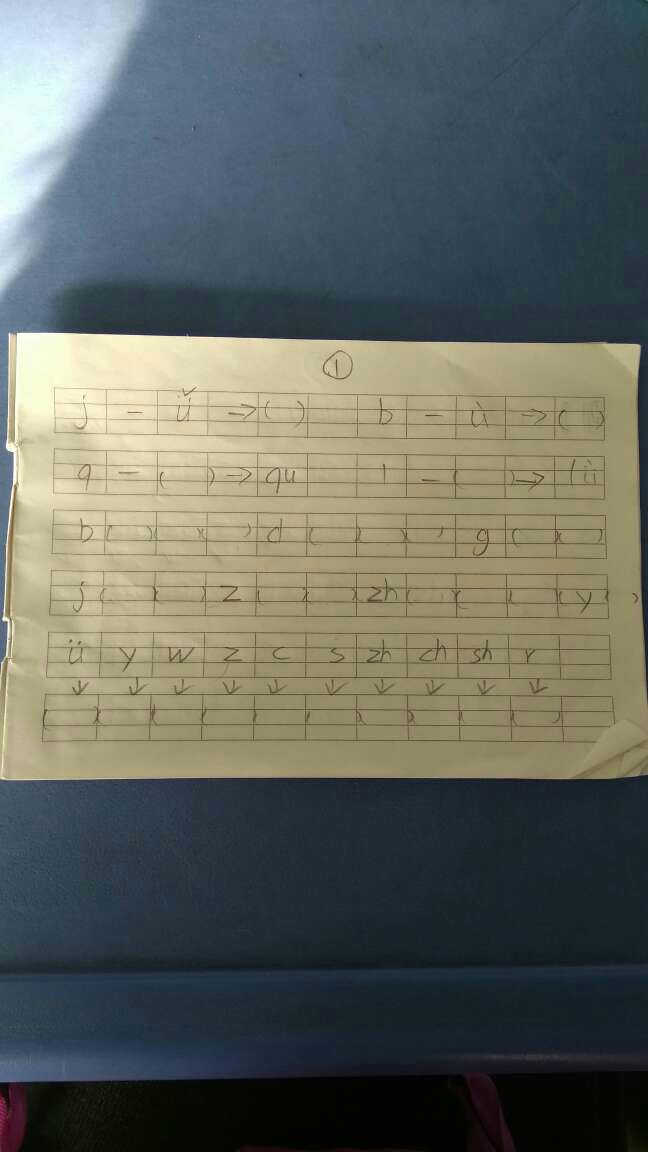 ①
j — ǚ → ( ) b — ù → ( )
q — ( ) → qu l — ( ) → lù
b ( ) ( ) ( ) d ( ) ( ) ( ) g ( ) ( )
j ( ) ( ) z ( ) ( ) zh ( ) ( ) ( ) ( y )
ü y w z c s zh ch sh r
↓ ↓ ↓ ↓ ↓ ↓ ↓ ↓ ↓ ↓
( ) ( ) ( ) ( ) ( ) ( ) ( ) ( ) ( ) ( )